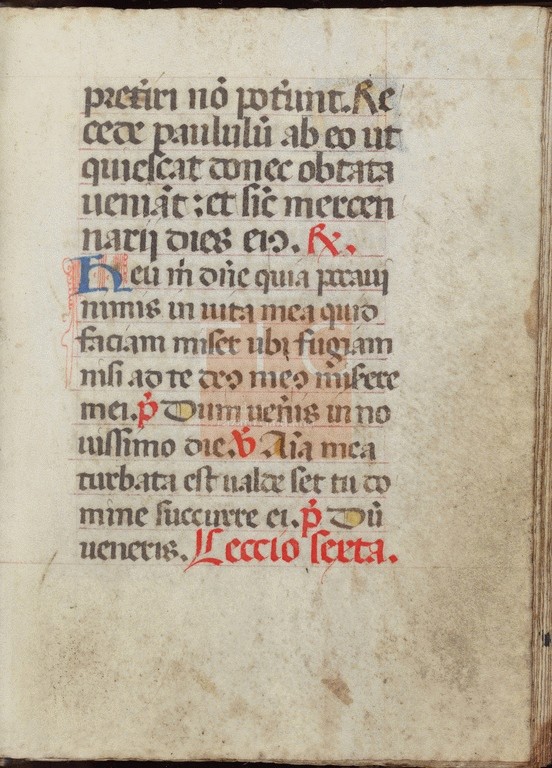 pret͛iri nō pot͛unt. Re
cede paululū ab eo ut
quiescat donec obtata
ueniāt : et sic̄ mercen
narij dies eiꝰ. R⁊.
Heu m̄ dn̄e quia peccaui
nimis in uita mea quid
faciam miser ubi fugiam
nisi ad te deꝰ meꝰ misere
mei. p̄ Dum uen͛is in no
uissimo die. V̄ Aīa mea
turbata est ualde set tu do
mine succurre ei. p̄ Dū
ueneris. Leccio sexta.